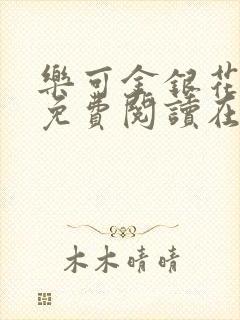 樂可金銀花
免費閱讀在
木木晴晴